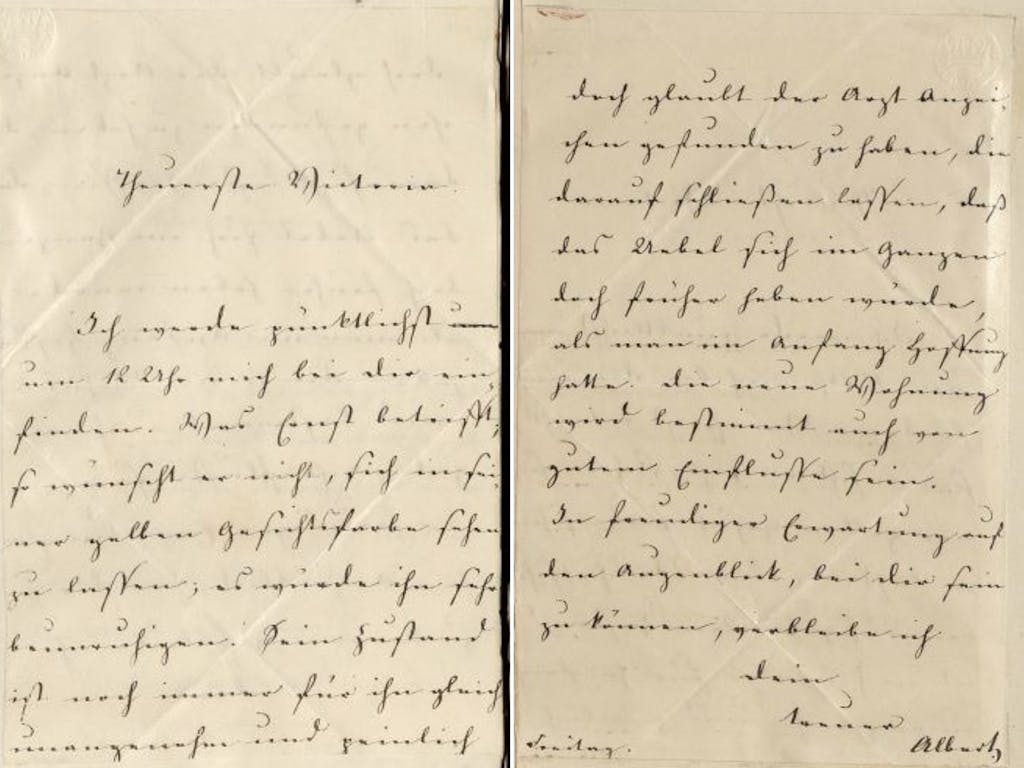 Theuerste Victoria.
Ich werde pünktlichst um
um 12 Uhr mich bei dir ein,
finden. Was Ernst betrifft,
so wünscht er nicht, sich in sei,
ner gelben Gesichtsfarbe sehen
zu lassen; es würde ihn sehr
beunruhigen. Sein Zustand
ist noch immer für ihn gleich
unangenehm und peinlich
doch glaubt der Arzt Anzei,
chen gefunden zu haben, die
darauf schließen lassen, daß
das Uebel sich im Ganzen
doch früher heben würde,
als man im Anfang Hoffnung
hatte. die neue Wohnung
wird bestimmt auch von
gutem Einflusse sein.
In freudiger Erwartung auf
den Augenblick, bei dir sein
zu können, verbleibe ich
dein
treuer
Albert
Freitag.